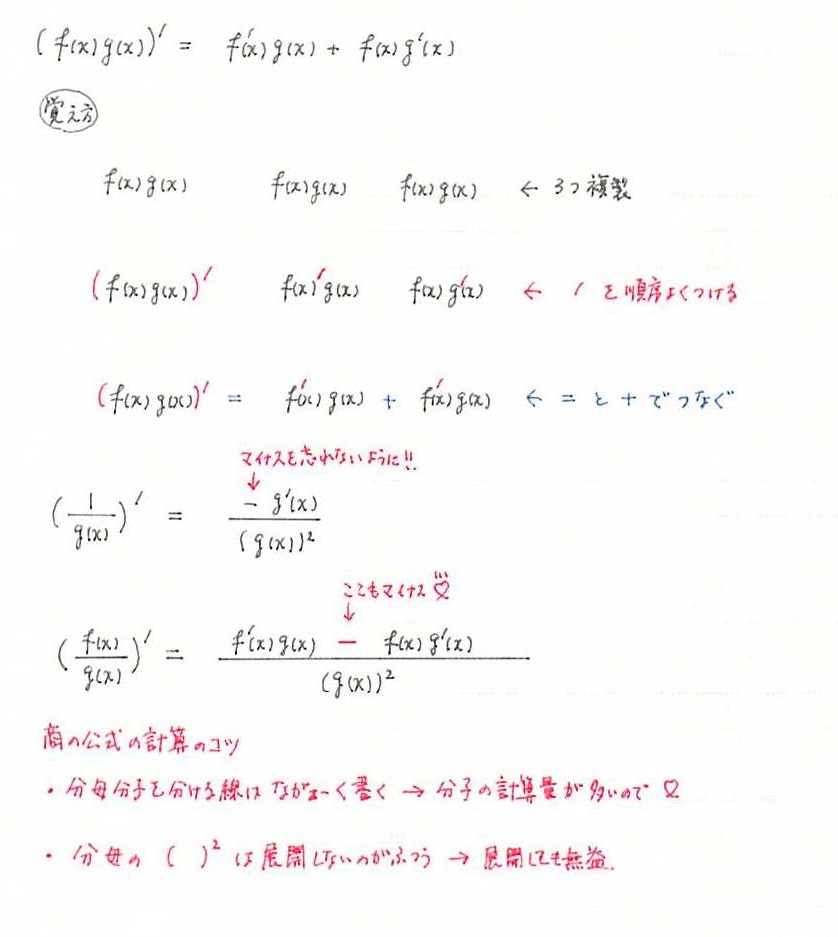 (f(x)g(x))' = f'(x)g(x) + f(x)g'(x)
覚え方
f(x)g(x) f(x)g(x) f(x)g(x) ← 3つ複製
(f(x)g(x))' f(x)'g(x) f(x)g'(x) ← ′を順序よくつける
(f(x)g(x))' = f'(x)g(x) + f'(x)g(x) ← =と+でつなぐ
マイナスを忘れないように!!
↓
(1/g(x))' = -g'(x)/(g(x))²
ここもマイナス♡
↓
(f(x)/g(x))' = f'(x)g(x) - f(x)g'(x)/(g(x))²
商の公式の計算のコツ
・分母分子を分ける線はながぁ〜く書く → 分子の計算量が多いので♡
・分母の( )²は展開しないのがふつう → 展開しても無益.